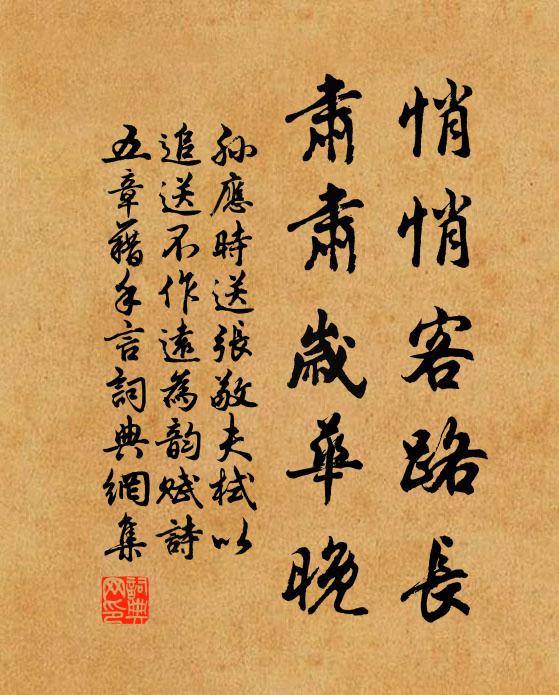 悄悄客路長
肅肅歲華晚
孫應時送張敬夫栻以
追送不作遠為韵賦詩
五章藉手言詞典網集
詞典網印